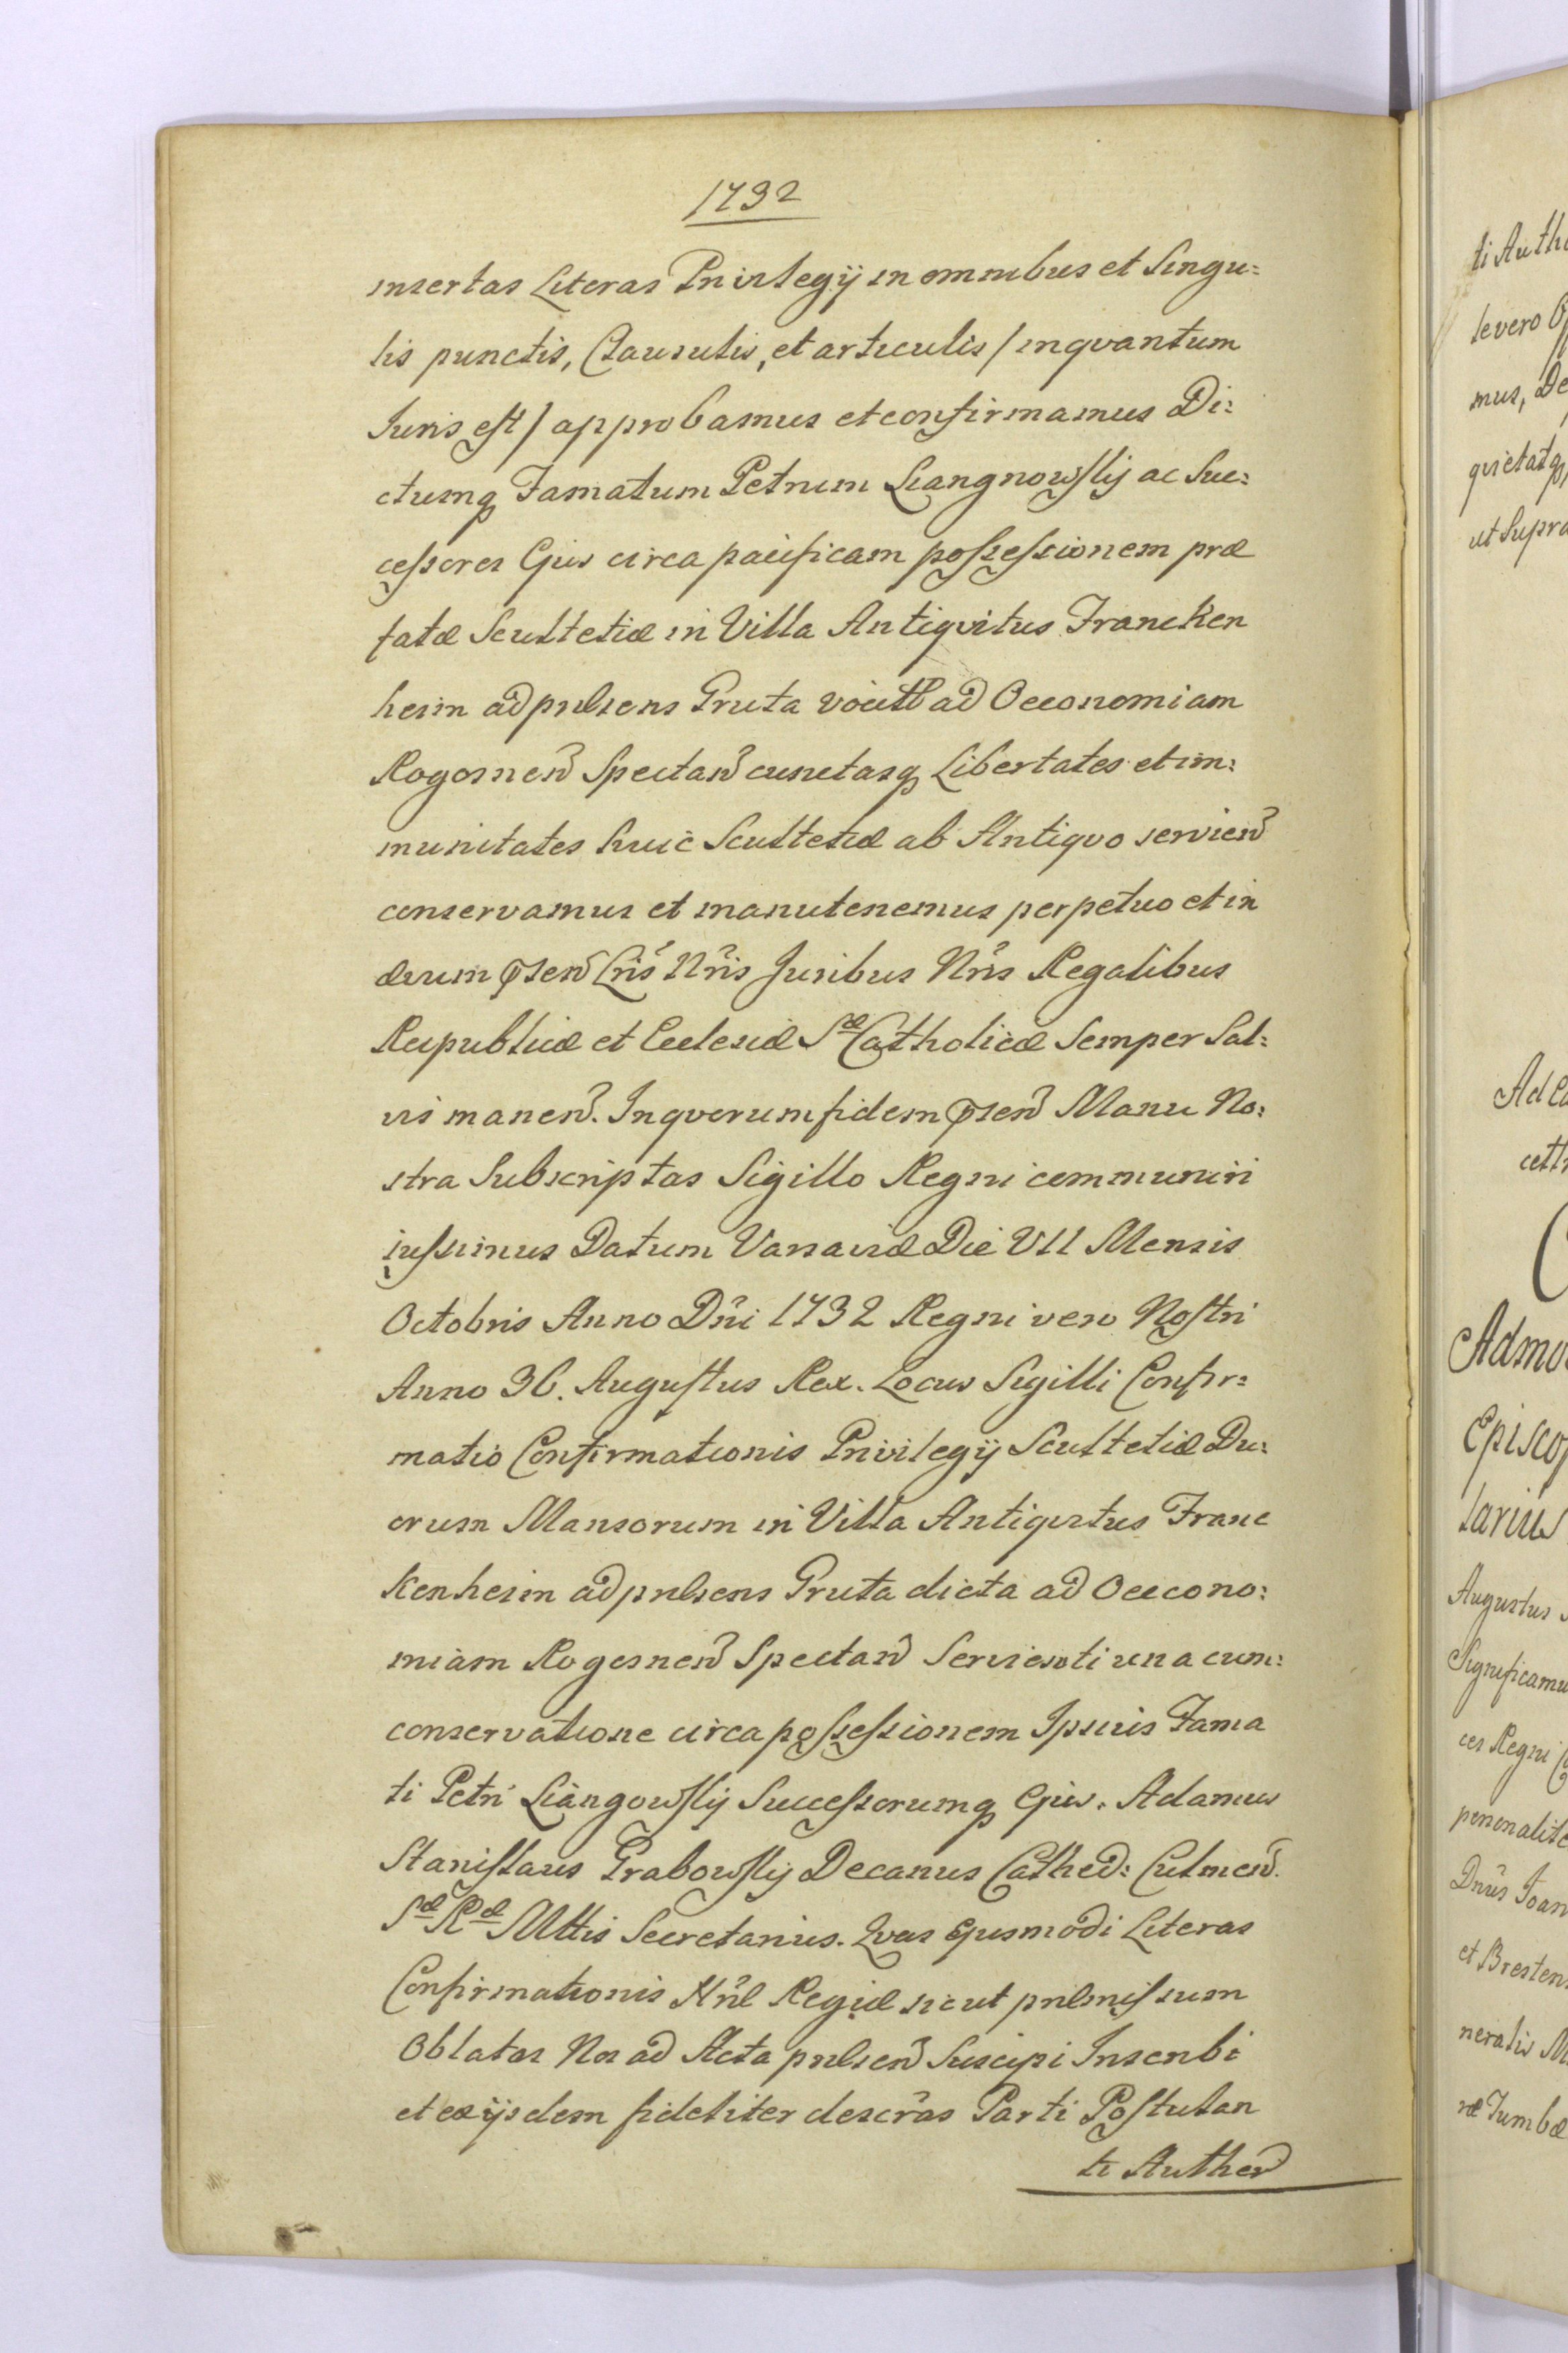 1732
insertas Literas Privilegij in omnibus et Singu:
lis punctis, Clausulis, et articulis / inqvantum
Iuris est / approbamus et confirmamus Di:
ctumq Famatum Petrum Liangnowskij ac Suc:
cessores Ejus circa pacificam possessionem præ
fatæ Scultetiæ in Villa Antiqvitus Francken
heim ad præsens Gruta vocit ad Oeconomiam
Rogosnen Spectan cunctasq Libertates et im:
munitates huic Scultetiæ ab Antiqvo servien
conservamus et manutenemus perpetuo et in
ævum psen Lris Nris Juribus Nris Regalibus
Reipublicæ et Ecclesiæ Sæ Catholicæ Semper Sal:
vis manen. In qvorum fidem psen Manu No:
stra Subscriptas Sigillo Regni communiri
jussimus Datum Varsaviæ Die VII Mensis
Octobris Anno Dni 1732 Regni vero Nostri
Anno 36. Augustus Rex. Locus Sigilli Confir:
matio Confirmationis Privilegij Scultetiæ Du:
orum Mansorum in Villa Antiqvitus Franc
kenheim ad præsens Gruta dicta ad Oecono:
miam Rogosnen Spectan Servienti una cum:
conservatione circa possessionem Ipsius Fama
ti Petri Liangowskij Successorumq Ejus. Adamus
Stanislaus Grabowskij Decanus Cathed: Culmen.
Sæ Ræ Mttis Secretarius. Qvas Ejusmodi Literas
Confirmationis Nræ Regiæ sicut præmissum
Oblatas Nos ad Acta præsen Suscipi Inscribi
et ex ijsdem fideliter descras Parti Postulan
ti Authen
ti Auth
le vero
mus, De
qvietatq
ut Supra
Ad
Admo
Episcop
larius
Augustus
Significamu
ces Regni
personalite
Dnus Joan
et Bresten
neralis M
næ Tumbæ